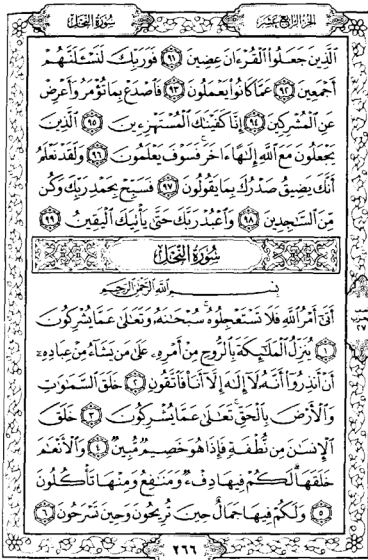 سُورَةُ النَّحْلِ
الجزء الرابع عشر
الَّذِينَ جَعَلُوا الْقُرْءَانَ عِضِينَ ٩١ فَوَرَبِّكَ لَنَسْـَٔلَنَّهُمْ
أَجْمَعِينَ ٩٢ عَمَّا كَانُوا يَعْمَلُونَ ٩٣ فَاصْدَعْ بِمَا تُؤْمَرُ وَأَعْرِضْ
عَنِ الْمُشْرِكِينَ ٩٤ إِنَّا كَفَيْنَاكَ الْمُسْتَهْزِءِينَ ٩٥ الَّذِينَ
يَجْعَلُونَ مَعَ اللَّهِ إِلَٰهًا ءَاخَرَ فَسَوْفَ يَعْلَمُونَ ٩٦ وَلَقَدْ نَعْلَمُ
أَنَّكَ يَضِيقُ صَدْرُكَ بِمَا يَقُولُونَ ٩٧ فَسَبِّحْ بِحَمْدِ رَبِّكَ وَكُن
مِّنَ السَّٰجِدِينَ ٩٨ وَاعْبُدْ رَبَّكَ حَتَّىٰ يَأْتِيَكَ الْيَقِينُ ٩٩
سُورَةُ النَّحْلِ
بِسْمِ اللَّهِ الرَّحْمَٰنِ الرَّحِيمِ
أَتَىٰ أَمْرُ اللَّهِ فَلَا تَسْتَعْجِلُوهُ سُبْحَٰنَهُ وَتَعَٰلَىٰ عَمَّا يُشْرِكُونَ
١ يُنَزِّلُ الْمَلَٰٓئِكَةَ بِالرُّوحِ مِنْ أَمْرِهِ عَلَىٰ مَن يَشَاءُ مِنْ عِبَادِهِ
أَنْ أَنذِرُوا أَنَّهُ لَا إِلَٰهَ إِلَّا أَنَا فَاتَّقُونِ ٢ خَلَقَ السَّمَٰوَٰتِ
وَالْأَرْضَ بِالْحَقِّ تَعَٰلَىٰ عَمَّا يُشْرِكُونَ ٣ خَلَقَ
الْإِنسَٰنَ مِن نُّطْفَةٍ فَإِذَا هُوَ خَصِيمٌ مُّبِينٌ ٤ وَالْأَنْعَٰمَ
خَلَقَهَا لَكُمْ فِيهَا دِفْءٌ وَمَنَٰفِعُ وَمِنْهَا تَأْكُلُونَ
٥ وَلَكُمْ فِيهَا جَمَالٌ حِينَ تُرِيحُونَ وَحِينَ تَسْرَحُونَ ٦
٢٦٦